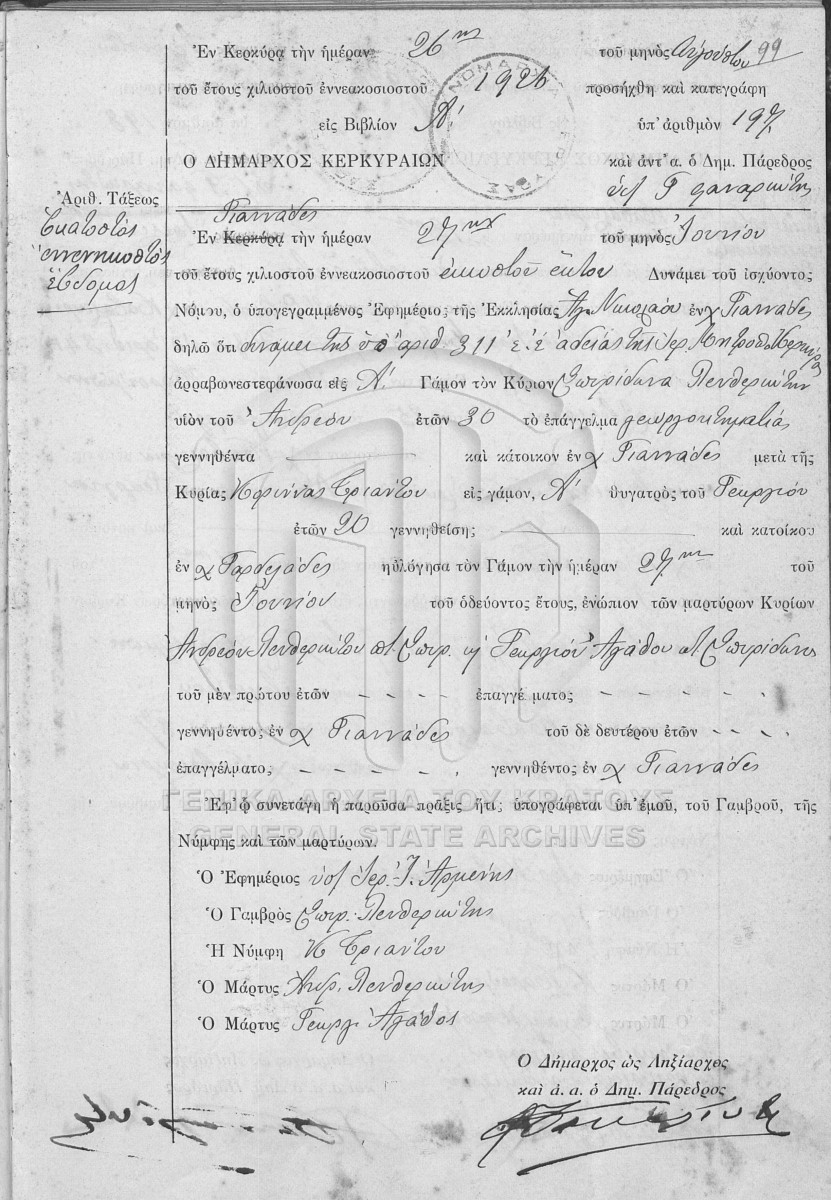 Ἐν Κερκύρᾳ τὴν ἡμέραν 26ην τοῦ μηνὸς Αὐγούστου 99
τοῦ ἔτους χιλιοστοῦ ἐννεακοσιοστοῦ 1926 προσήχθη καὶ κατεγράφη
εἰς Βιβλίον Α' ὑπ' ἀριθμὸν 197
Ο ΔΗΜΑΡΧΟΣ ΚΕΡΚΥΡΑΙΩΝ καὶ ἀντ' α. ὁ Δημ. Πάρεδρος
Ἀριθ. Τάξεως
Ἑκατοστὸς
ἐννενηκοστὸς
ἕβδομος
Γιαννάδες
Ἐν Κερκύρᾳ τὴν ἡμέραν 27ην τοῦ μηνὸς Ἰουνίου
τοῦ ἔτους χιλιοστοῦ ἐννεακοσιοστοῦ εἰκοστοῦ ἕκτου Δυνάμει τοῦ ἰσχύοντος
Νόμου, ὁ ὑπογεγραμμένος Ἐφημέριος τῆς Ἐκκλησίας Ἁγ. Νικολάου ἐν χ Γιαννάδες
δηλῶ ὅτι δυνάμει τῆς ὑπ' ἀριθ 311 ἀδείας τῆς Ἱερ. Μητροπ. Κερκύρας
ἀρραβωνεστεφάνωσα εἰς Α' Γάμον τὸν Κύριον Σπυρίδωνα Πενθερκώτην
υἱὸν τοῦ Ἀνδρέου ἐτῶν 30 τὸ ἐπάγγελμα γεωργοκτηματίας
γεννηθέντα καὶ κάτοικον ἐν χ Γιαννάδες μετὰ τῆς
Κυρίας Τριάντου εἰς γάμον, Α' θυγατρὸς τοῦ Γεωργίου
ἐτῶν 20 γεννηθείσης καὶ κατοίκου
ἐν χ Γαρδελάδες ηὐλόγησα τὸν Γάμον τὴν ἡμέραν 27ην τοῦ
μηνὸς Ἰουνίου τοῦ ὁδεύοντος ἔτους, ἐνώπιον τῶν μαρτύρων Κυρίων
Ἀνδρέου Πενθερκώτου Σπυρ. Γεωργίου Ἀγάθου Σπυρίδωνος
τοῦ μὲν πρώτου ἐτῶν – – – – ἐπαγγέλματος – – – – –
γεννηθέντος ἐν χ Γιαννάδες τοῦ δὲ δευτέρου ἐτῶν – – – –
ἐπαγγέλματος – – – – – γεννηθέντος ἐν χ Γιαννάδες
ΓΕΝΙΚΑ ΑΡΧΕΙΑ ΤΟΥ ΚΡΑΤΟΥΣ
Ἐφ' ᾧ συνετάγη ἡ παροῦσα πρᾶξις ἥτις ὑπογράφεται ὑπ' ἐμοῦ, τοῦ Γαμβροῦ, τῆς
GENERAL STATE ARCHIVES
Νύμφης καὶ τῶν μαρτύρων.
Ὁ Ἐφημέριος Ἱερ. Ἰ. Ἀρμένης
Ὁ Γαμβρὸς Σπυρ. Πενθερκώτης
Ἡ Νύμφη Κ Τριάντου
Ὁ Μάρτυς Ἀνδρ. Πενθερκώτης
Ὁ Μάρτυς Γεωργ. Ἀγάθος
Ὁ Δήμαρχος ὡς Ληξίαρχος
καὶ ἀ. α. ὁ Δημ. Πάρεδρος